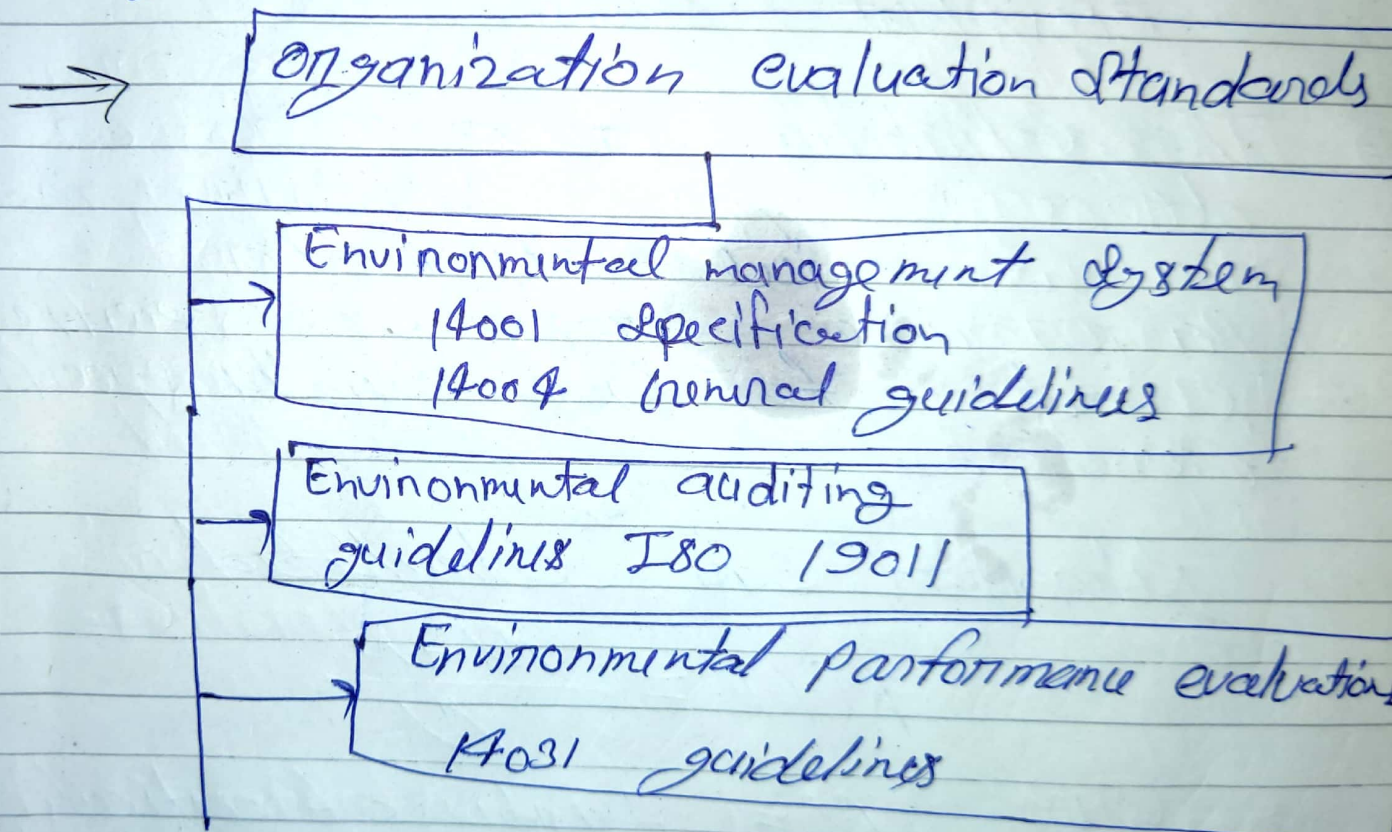 Organization evaluation Standards
Environmental management System
14001 Specification
14004 General guidelines
Environmental auditing
guidelines ISO 19011
Environmental parformance evaluation
14031 guidelines